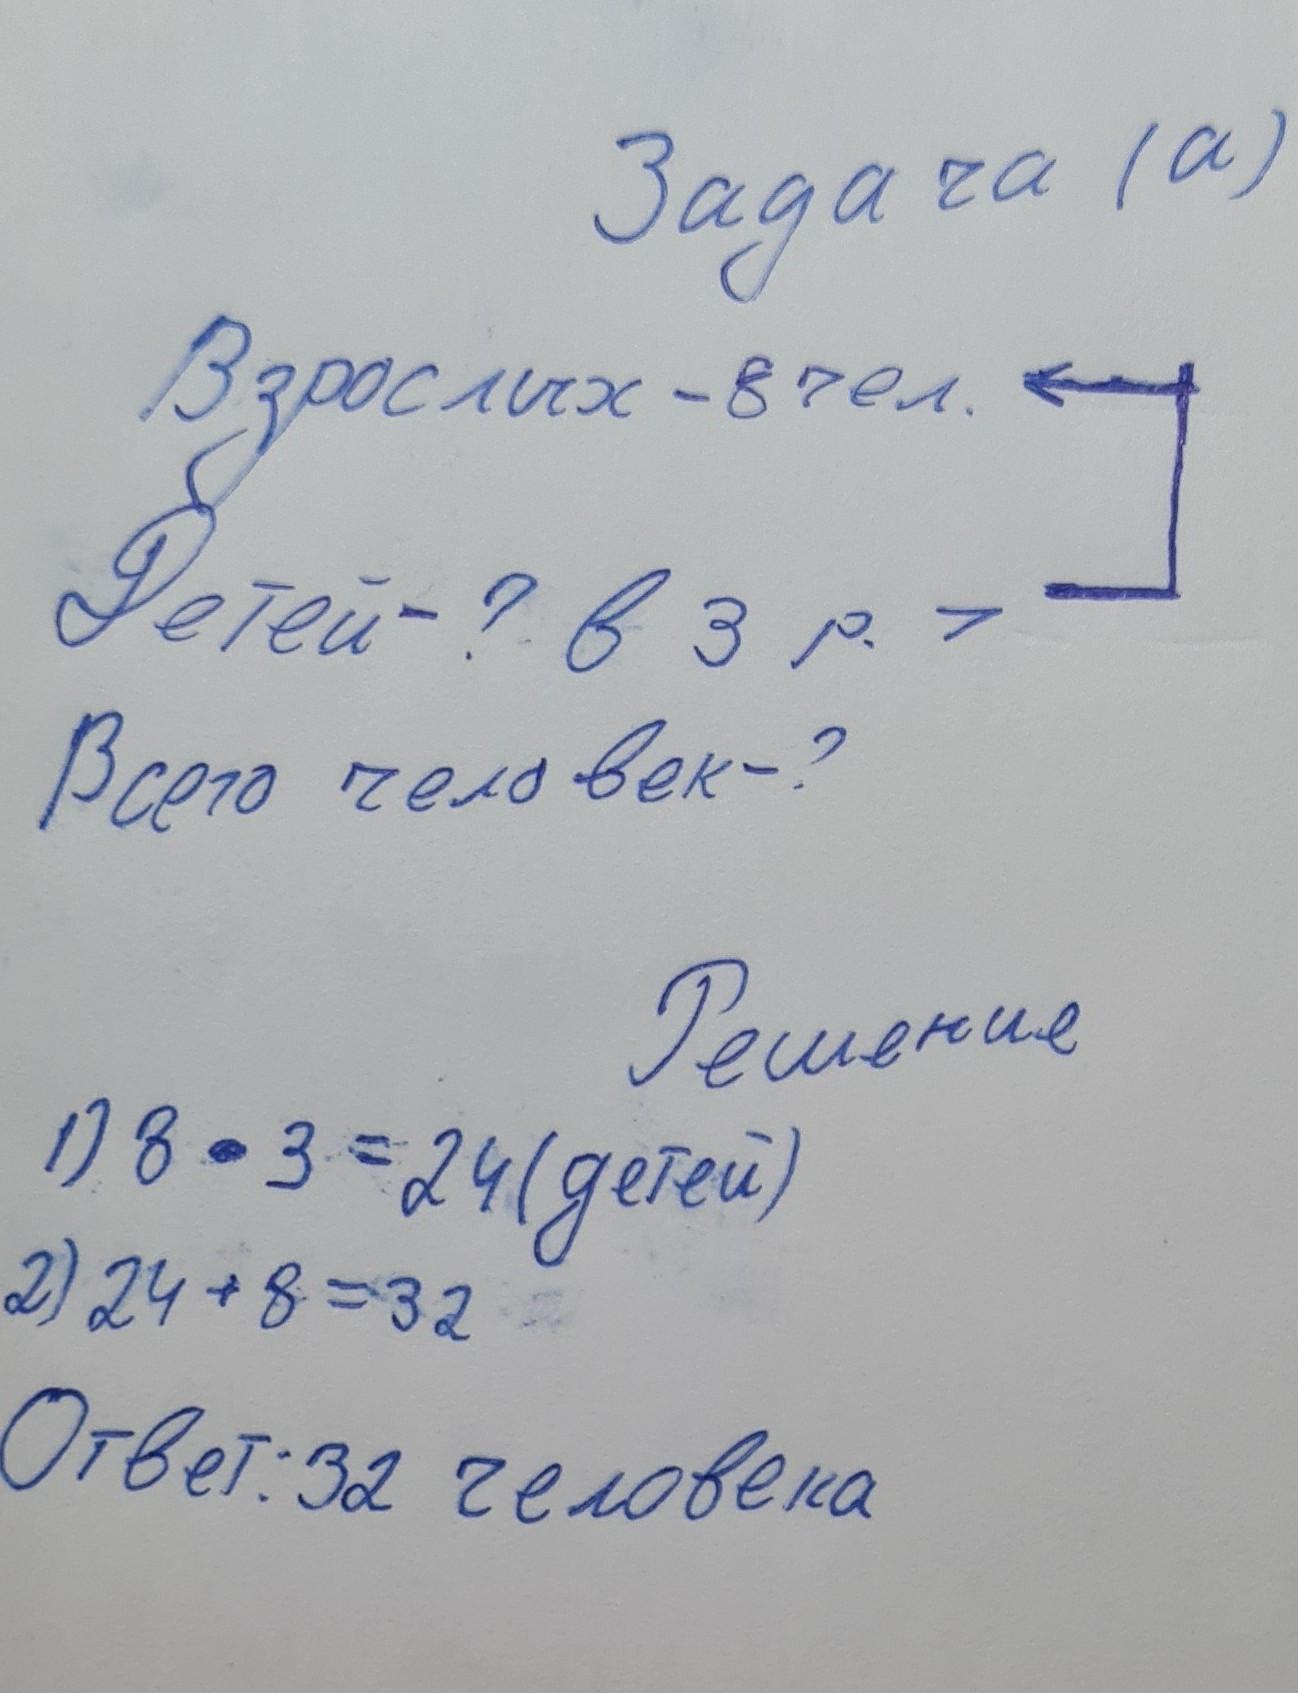 Задача (а)
Взрослых - 8 чел.
Детей - ? в 3 р. >
Всего человек - ?
Решение
1) 8 • 3 = 24 (детей)
2) 24 + 8 = 32
Ответ: 32 человека